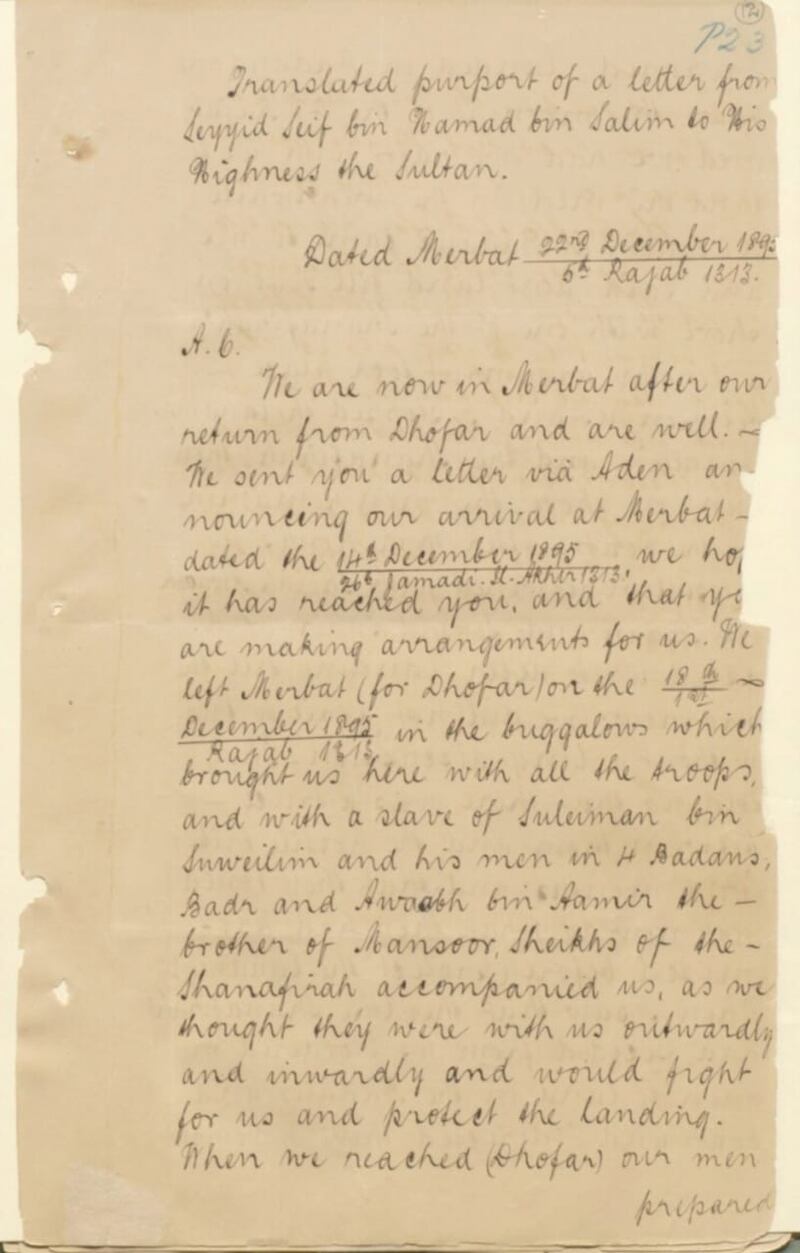 (12)
P23
Translated purport of a letter from
Seyyid Seif bin Hamad bin Salim to His
Highness the Sultan.
Dated Merbat 22nd December 1895
6th Rajab 1313.
A. C.
We are now in Merbat after our
return from Dhofar and are well. –
We sent you a letter via Aden an
nouncing our arrival at Merbat –
dated the 14th December 1895 we hop
26th Jamadi. El. Akher 1313,
it has reached you, and that yo
are making arrangements for us. We
left Merbat (for Dhofar) on the 18th –
1st
December 1895 in the buggalows which
Rajab 1313
brought us here with all the troops,
and with a slave of Suleiman bin
Suweilim and his men in 4 Badans,
Badr and Awadh bin Aamir the –
brother of Mansoor, Sheikhs of the –
Shanafirah accompanied us, as we
thought they were with us outwardly
and inwardly and would fight
for us and protect the landing.
When we reached (Dhofar) our men
prepared